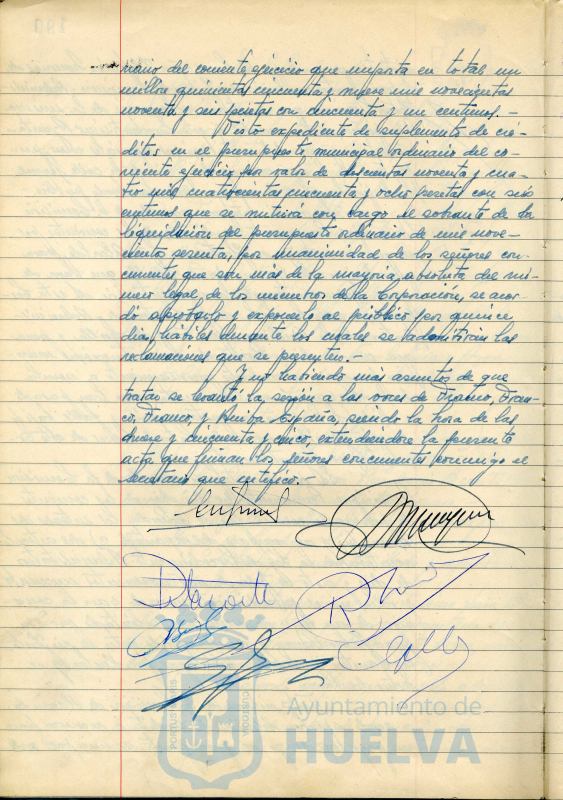 nario del corriente ejercicio que importa en total un
millon quinientas cincuenta y nueve mil novecientas
noventa y seis pesetas con cincuenta y un centimos.-
Visto expediente de suplemento de cré-
ditos en el presupuesto municipal ordinario del co-
rriente ejercicio por valor de doscientas noventa y cua-
tro mil cuatrocientas cincuenta y ocho pesetas con seis
centimos que se nutrirá con cargo al sobrante de la
liquidación del presupuesto ordinario de mil nove-
cientos sesenta, por unanimidad de los señores con-
currentes que son más de la mayoria absoluta del nú-
mero legal de los miembros de la Corporación, se acor-
dó aprobarlo y exponerlo al público por quince
dias hábiles durante los cuales se admitirán las
reclamaciones que se presenten.-
Y no habiendo más asuntos de que
tratar se levantó la sesión a las voces de Franco, Fran-
co, Franco, y Arriba España, siendo la hora de las
nueve y cincuenta y cinco, extendiendose la presente
acta que firman los señores concurrentes conmigo el
secretario que certifico.-
PORTUS MARIS
CUSTODIA
Ayuntamiento de
HUELVA